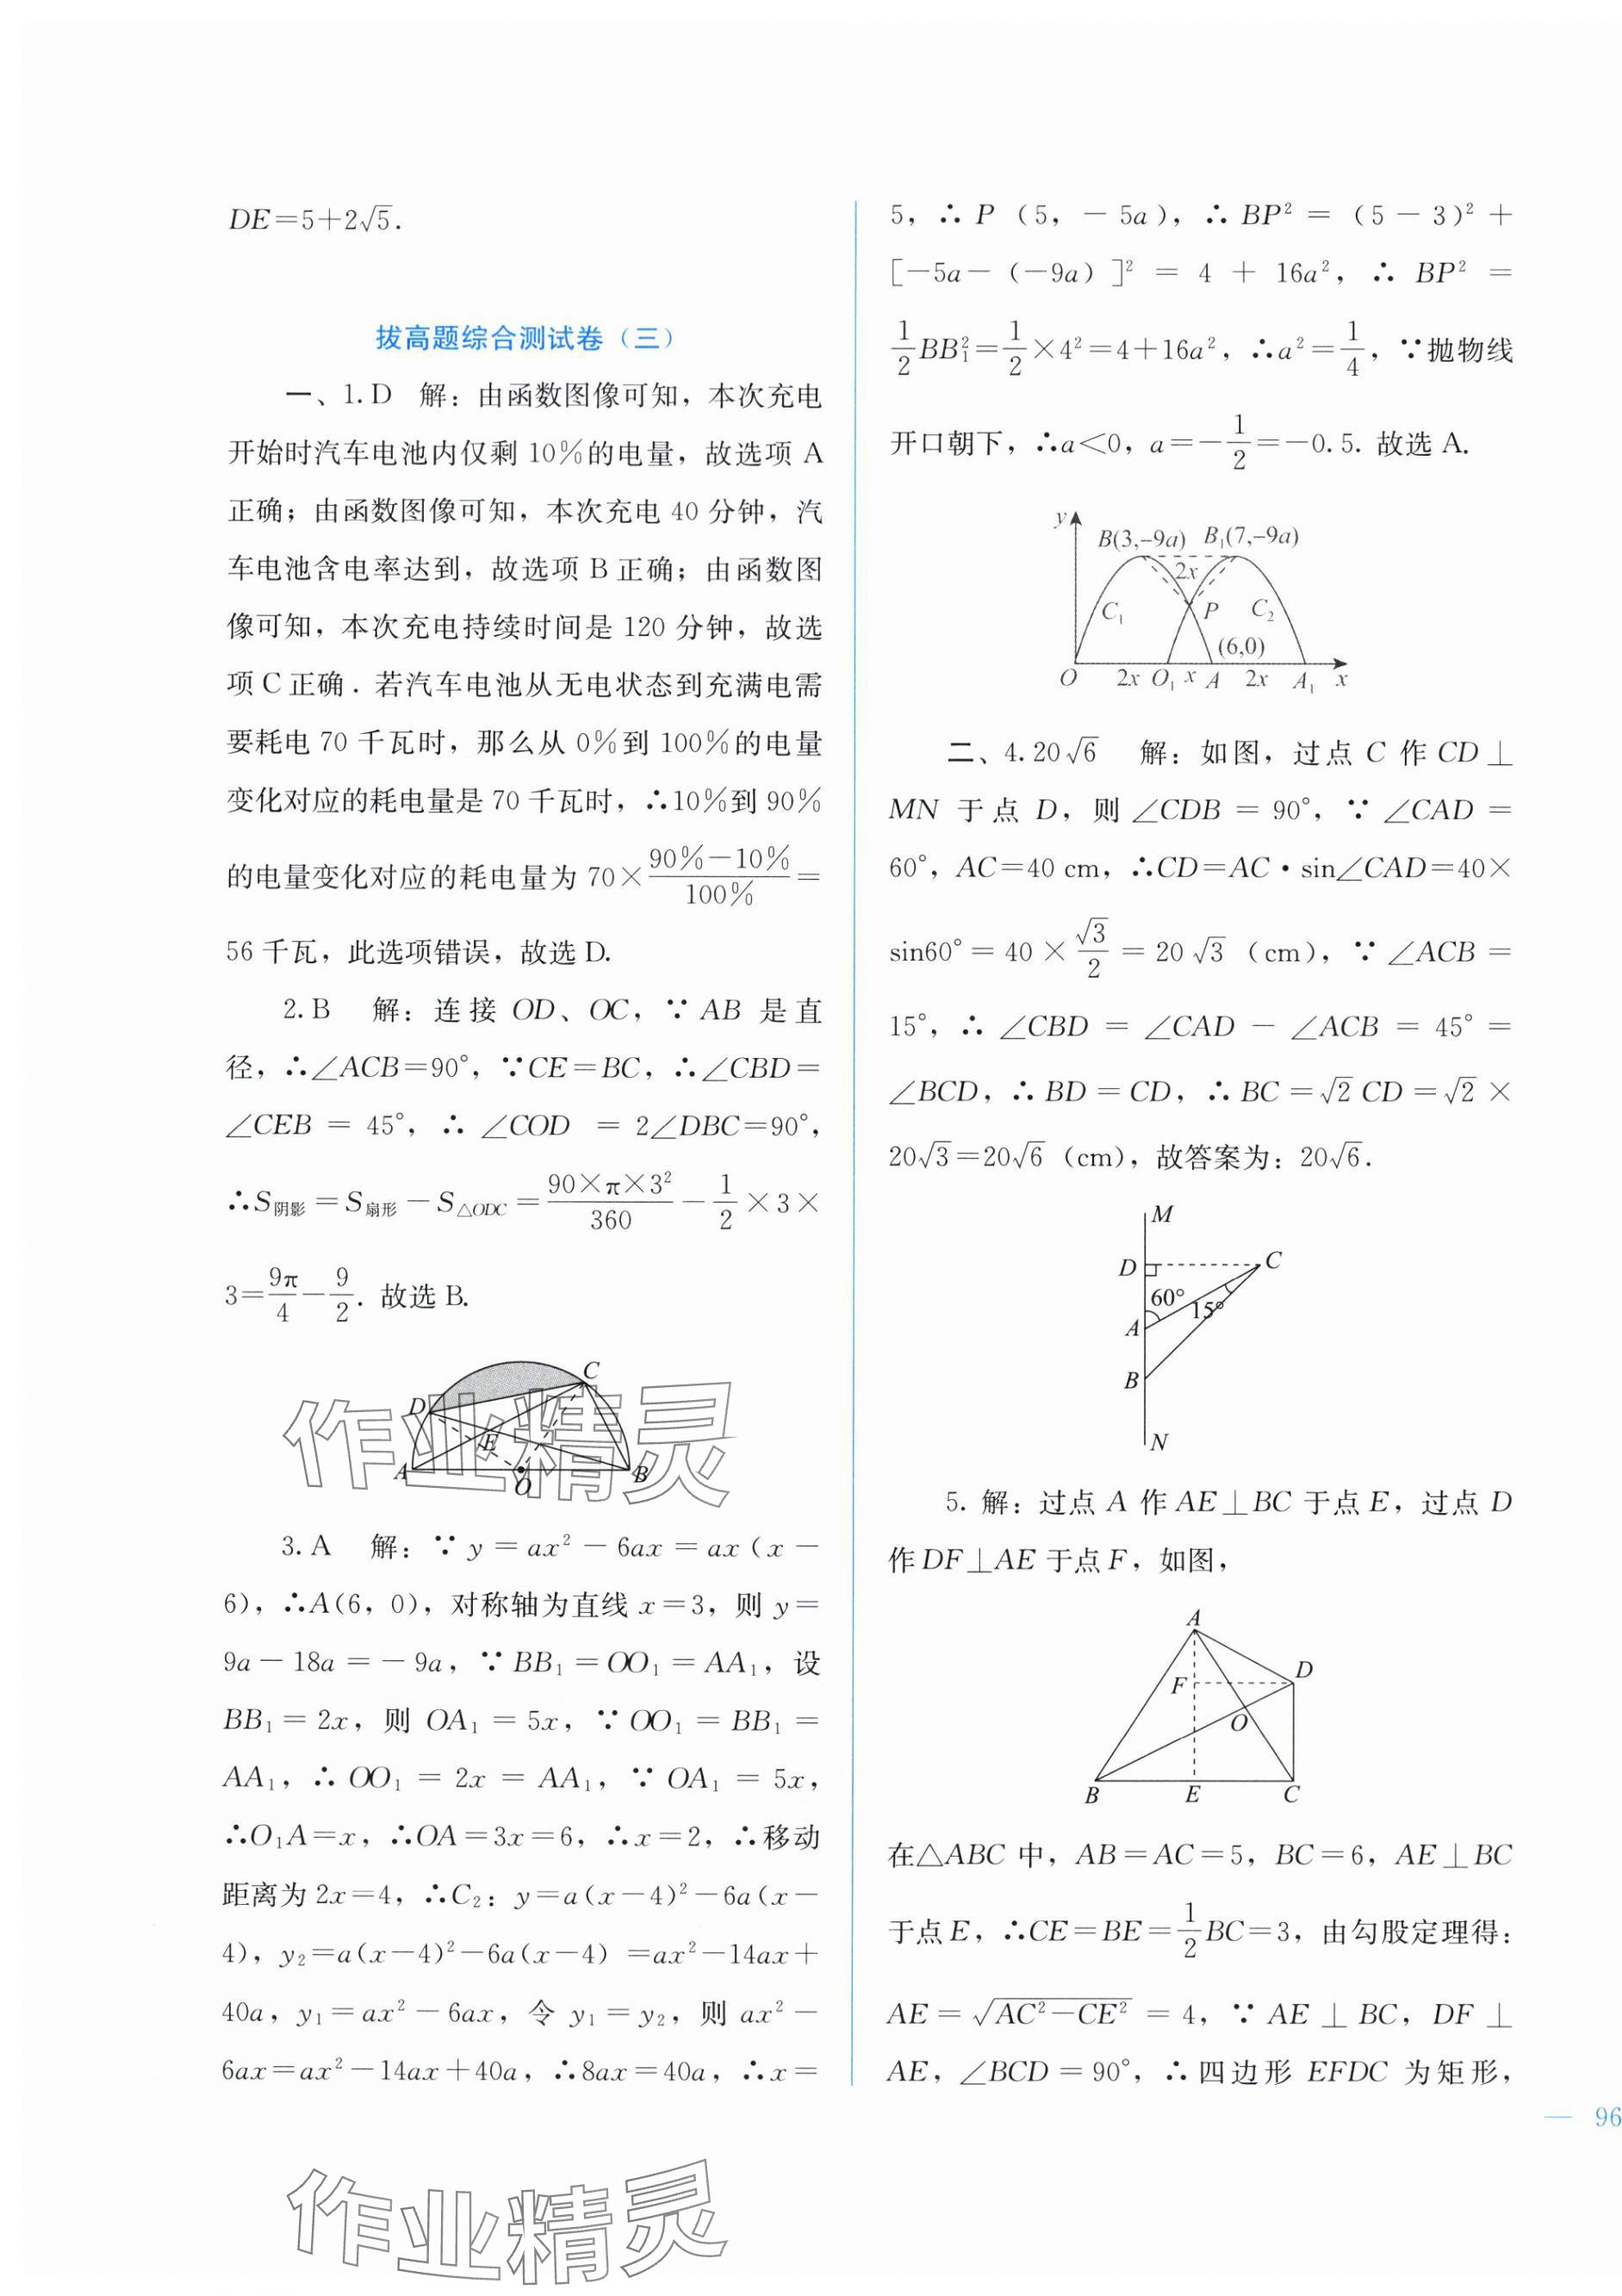 DE=5+2√5.
拔高题综合测试卷（三）
一、1. D　解：由函数图像可知，本次充电
开始时汽车电池内仅剩 10%的电量，故选项 A
正确；由函数图像可知，本次充电 40 分钟，汽
车电池含电率达到，故选项 B 正确；由函数图
像可知，本次充电持续时间是 120 分钟，故选
项 C 正确．若汽车电池从无电状态到充满电需
要耗电 70 千瓦时，那么从 0%到 100%的电量
变化对应的耗电量是 70 千瓦时，∴10%到 90%
的电量变化对应的耗电量为 70×(90%－10%)/100%＝
56 千瓦，此选项错误，故选 D.
2. B　解：连接 OD、OC，∵ AB 是直
径，∴∠ACB=90°，∵CE=BC，∴∠CBD=
∠CEB = 45°，∴ ∠COD = 2∠DBC=90°，
∴S阴影＝S扇形－S△ODC＝(90×π×3²)/360－1/2×3×
3=9π/4－9/2．故选 B.
C
D
E
A
O
B
3. A　解：∵ y = ax² － 6ax = ax（x －
6)，∴A(6，0)，对称轴为直线 x=3，则 y=
9a － 18a = － 9a，∵ BB₁ = OO₁ = AA₁，设
BB₁ = 2x，则 OA₁ = 5x，∵ OO₁ = BB₁ =
AA₁，∴ OO₁ = 2x = AA₁，∵ OA₁ = 5x，
∴O₁A=x，∴OA=3x=6，∴x=2，∴移动
距离为 2x=4，∴C₂：y=a(x－4)²－6a(x－
4)，y₂=a(x－4)²－6a(x－4) =ax²－14ax+
40a，y₁ = ax² － 6ax，令 y₁ = y₂，则 ax² －
6ax=ax²－14ax+40a，∴8ax=40a，∴x=
5，∴ P（5，－ 5a），∴ BP² =（5 － 3)² +
[－5a－（－9a）]² = 4 + 16a²，∴ BP² =
1/2BB₁²=1/2×4²=4+16a²，∴a²=1/4，∵抛物线
开口朝下，∴a<0，a=－1/2=－0.5. 故选 A.
y
B(3,-9a)　B₁(7,-9a)
2x
C₁　P　C₂
(6,0)
O　2x　O₁　x　A　2x　A₁　x
二、4. 20√6　解：如图，过点 C 作 CD⊥
MN 于点 D，则 ∠CDB = 90°，∵ ∠CAD =
60°，AC=40 cm，∴CD=AC·sin∠CAD=40×
sin60°＝40×√3/2＝20√3（cm)，∵ ∠ACB =
15°，∴ ∠CBD = ∠CAD － ∠ACB = 45° =
∠BCD，∴ BD = CD，∴ BC =√2 CD =√2 ×
20√3=20√6（cm)，故答案为：20√6.
M
D
C
60°
15°
A
B
N
5. 解：过点 A 作 AE⊥BC 于点 E，过点 D
作 DF⊥AE 于点 F，如图，
A
D
F
O
B
E
C
在△ABC 中，AB=AC=5，BC=6，AE⊥BC
于点 E，∴CE=BE=1/2BC=3，由勾股定理得：
AE =√(AC²－CE²) = 4，∵ AE ⊥ BC，DF ⊥
AE，∠BCD = 90°，∴ 四边形 EFDC 为矩形，
— 96
作业精灵
作业精灵